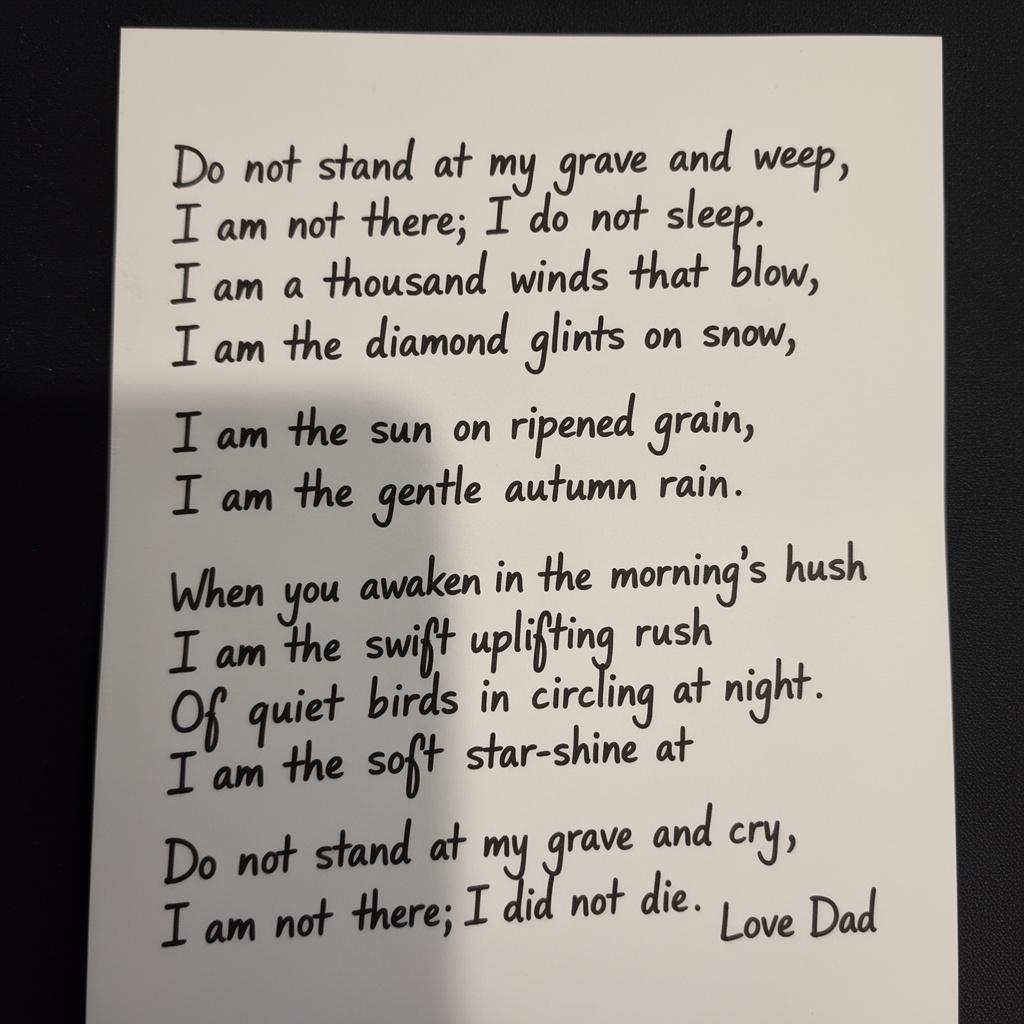 Do not stand at my grave and weep,
I am not there; I do not sleep.
I am a thousand winds that blow,
I am the diamond glints on snow,
I am the sun on ripened grain,
I am the gentle autumn rain.
When you awaken in the morning's hush
I am the swift uplifting rush
Of quiet birds in circling at night.
I am the soft star-shine at
Do not stand at my grave and cry,
I am not there; I did not die.
Love Dad